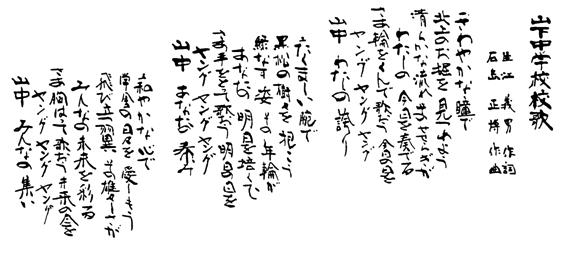 山下中学校校歌
生江 義男 作詞
石島 正博 作曲
さわやかな瞳で
北方のお堀を見つめよう
清らかな流れ まさらぎが
わたしの 今日を奏でる
さあ輪をくんで歌おう 今日の日を
ヤング ヤング ヤング
山中 わたしの誇り
たくましい腕で
黒松の樹々を 抱こう
緑なす姿 まの年輪が
あなたの 明日を培くて
さあ手をとって歌おう 明日の日を
ヤング ヤング ヤング
山中 あなたの恵み
和やかな心で
黄金の日々を 愛しもう
飛び立つ翼 ま雄々しさが
みんなの未来を彩る
さあ胸はって歌おう 未来の念を
ヤング ヤング ヤング
山中 みんなの集い